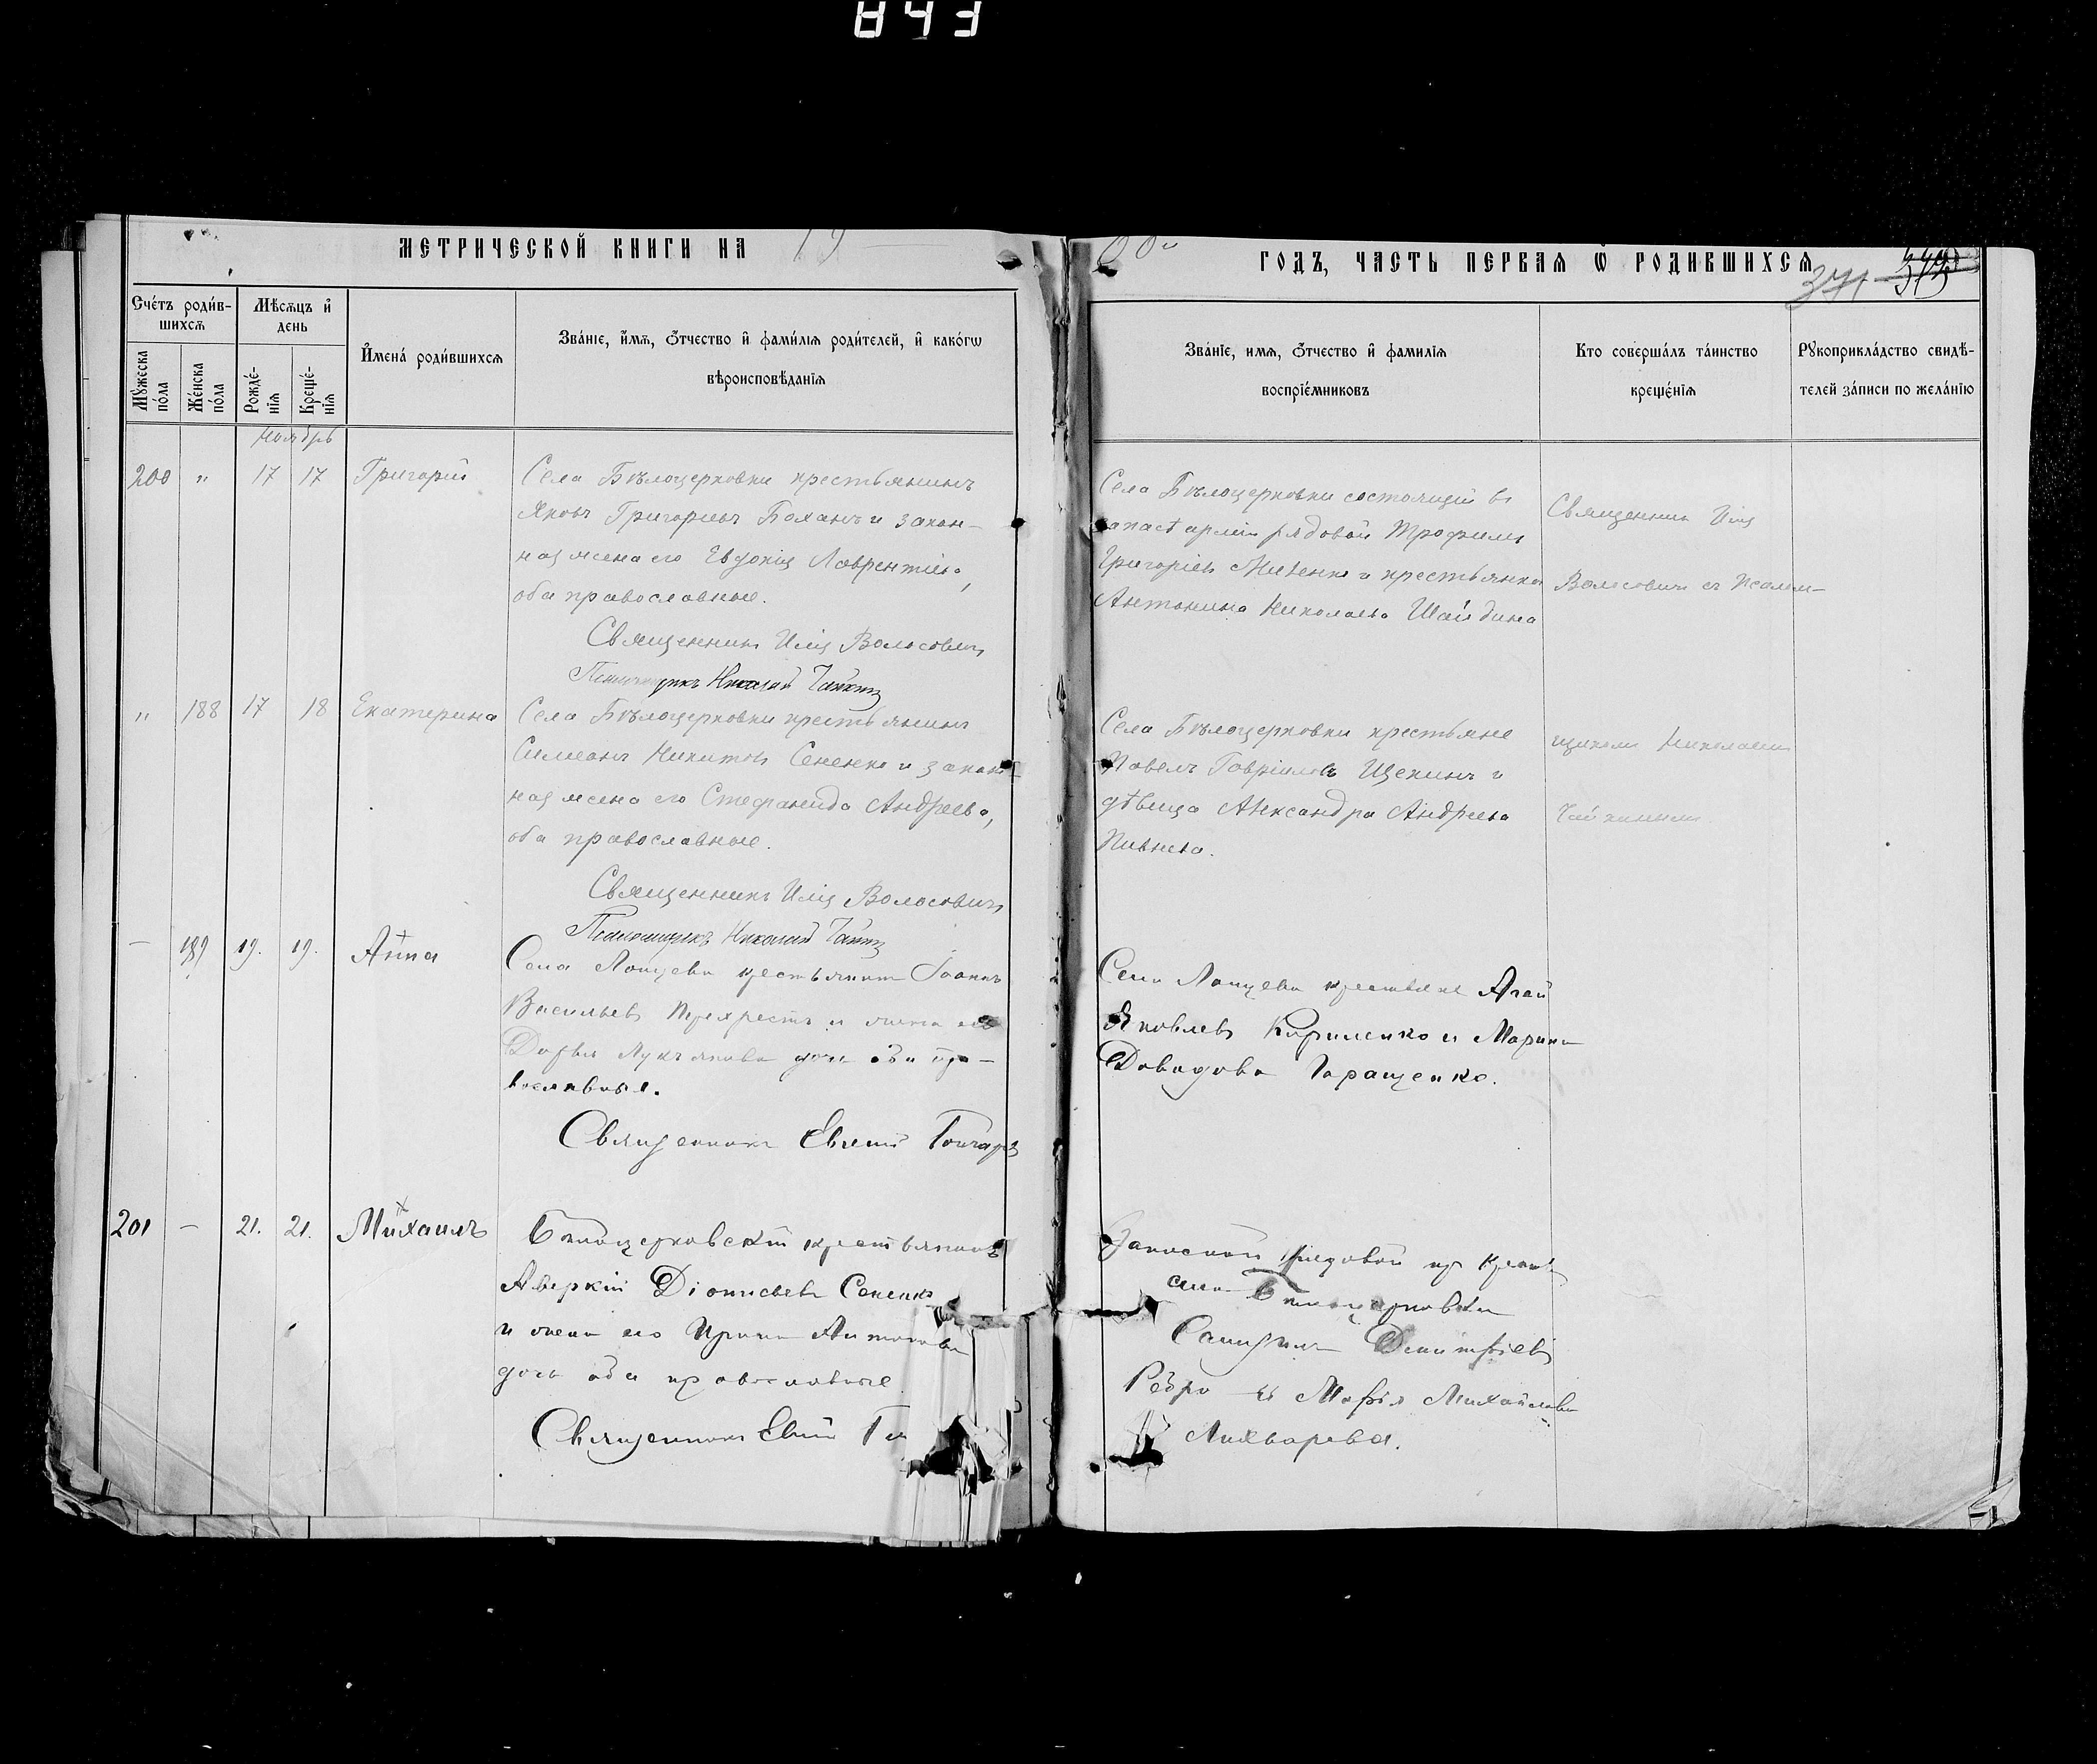 843
МЕТРИЧЕСКОЙ КНИГИ НА 19
00й ГОДЪ, ЧАСТЬ ПЕРВАЯ Ѿ РОДИВШИХСЯ
371
Счётъ роди́в-
шихся
Мѣсяцъ и҆
день
И҆мена́ роди́вшихся
Зва́нїе, и҆мя, ѻтчество и҆ фами́лїя роди́телей, и҆ како́гѡ
вѣроисповѣ́данїя
Мꙋжеска
по́ла
Же́нска
по́ла
Рожде́-
нїя
Креще́-
нїя
Зва́нїе, имя, ѻтчество и҆ фамилїя
воспрїе́мниковъ
Кто соверша́лъ та́инство
креще́нїя
Рꙋкоприкла́дство свидѣ́-
телей за́писи по жела́нїю
Ноябрь
200 " 17 17 Григорій
Села Бѣлоцерковки крестьянинъ
Яковъ Григорьевъ Боханъ и закон-
ная жена его Евдокія Лаврентіева,
оба православные.
Священникъ Илія Волосовичъ
Псаломщикъ Николай
Села Бѣлоцерковки состоящій въ
запасѣ арміи рядовой Трофимъ
Григоріевъ и крестьянка
Антонина Николаева Шайдина
Священникъ Илія
Волосовичъ съ псалом-
" 188 17 18 Екатерина
Села Бѣлоцерковки крестьянинъ
Симеонъ Никитинъ Сененко и закон-
ная жена его Стефанида Андреева,
оба православные.
Священникъ Илія Волосовичъ
Псаломщикъ Николай
Села Бѣлоцерковки крестьяне
Павелъ Гавріиловъ Щекинъ и
дѣвица Александра Андреева
Пивнева.
щикомъ Николаемъ
— 189 19. 19. Анна
Села крестьянинъ Іоаннъ
Васильевъ и жена его
Дарья Лукьянова дочь оба пра-
вославные.
Священникъ Евгеній Гончаръ
Села крестьяне
Яковлевъ Кириленко и Марина
Давидова Таращенко.
201 — 21. 21. Михаилъ
Бѣлоцерковскій крестьянинъ
Аверкій Діонисьевъ Сененко
и жена его Ирина Антонова
дочь оба православные
Священникъ
Запасной рядовой изъ крест.
села Бѣлоцерковки
Димитріевъ
Ребро и Марія Михайлова
Лихварева.